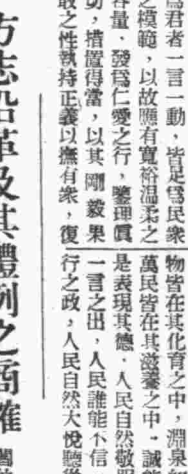 爲君者一言一動，皆足爲民衆
之模範，以故應有寬裕温柔之
容量，發爲仁愛之行，鑒理眞
切，措置得當，以其剛毅果
敢之性執持正義以撫有衆，復
物皆在其化育之中，淵泉
萬民皆在其滋養之中，誠
是表現其德，人民自然敬
一言之出，人民誰能不信
行之政，人民自然大悅聽從
方志沿革及其體例之商榷